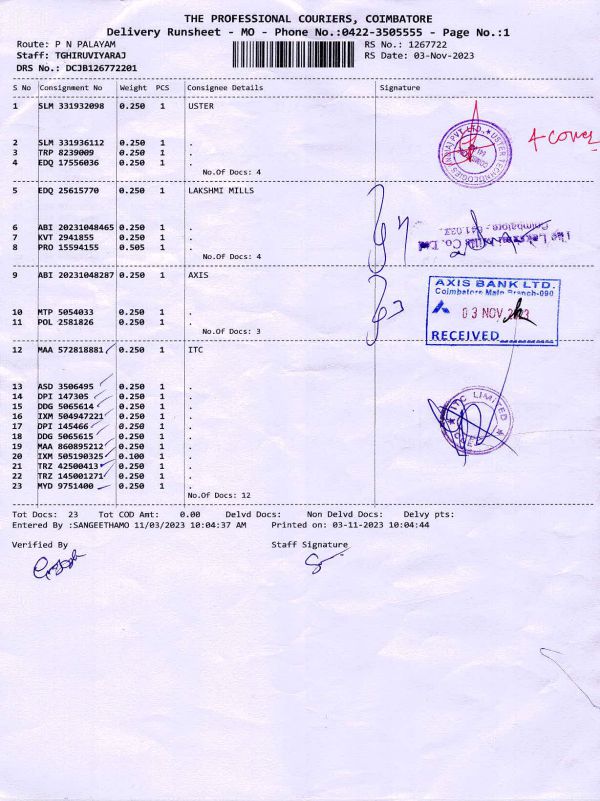 THE PROFESSIONAL COURIERS, COIMBATORE
Delivery Runsheet - MO - Phone No.:0422-3505555 - Page No.:1
Route: P N PALAYAM RS No.: 1267722
Staff: TGHIRUVIYARAJ RS Date: 03-Nov-2023
DRS No.: DCJB126772201
S No Consignment No Weight PCS Consignee Details Signature
1 SLM 331932098 0.250 1 USTER
2 SLM 331936112 0.250 1 .
3 TRP 8239009 0.250 1 .
4 EDQ 17556036 0.250 1 .
No.Of Docs: 4
USTER TECHNOLOGIES (INDIA) PVT. LTD.
4 cover
5 EDQ 25615770 0.250 1 LAKSHMI MILLS
6 ABI 20231048465 0.250 1 .
7 KVT 2941855 0.250 1 .
8 PRO 15594155 0.505 1 .
No.Of Docs: 4
The Lakshmi Mills Co. Ltd
Coimbatore - 641 037.
9 ABI 20231048287 0.250 1 AXIS
10 MTP 5054033 0.250 1 .
11 POL 2581826 0.250 1 .
No.Of Docs: 3
AXIS BANK LTD.
Coimbatore Main Branch-090
03 NOV 2023
RECEIVED
12 MAA 572818881 0.250 1 ITC
13 ASD 3506495 0.250 1 .
14 DPI 147305 0.250 1 .
15 DDG 5065614 0.250 1 .
16 IXM 504947221 0.250 1 .
17 DPI 145466 0.250 1 .
18 DDG 5065615 0.250 1 .
19 MAA 860895212 0.250 1 .
20 IXM 505190325 0.100 1 .
21 TRZ 42500413 0.250 1 .
22 TRZ 145001271 0.250 1 .
23 MYD 9751400 0.250 1 .
No.Of Docs: 12
ITC LIMITED
Tot Docs: 23 Tot COD Amt: 0.00 Delvd Docs: Non Delvd Docs: Delvy pts:
Entered By :SANGEETHAMO 11/03/2023 10:04:37 AM Printed on: 03-11-2023 10:04:44
Verified By Staff Signature